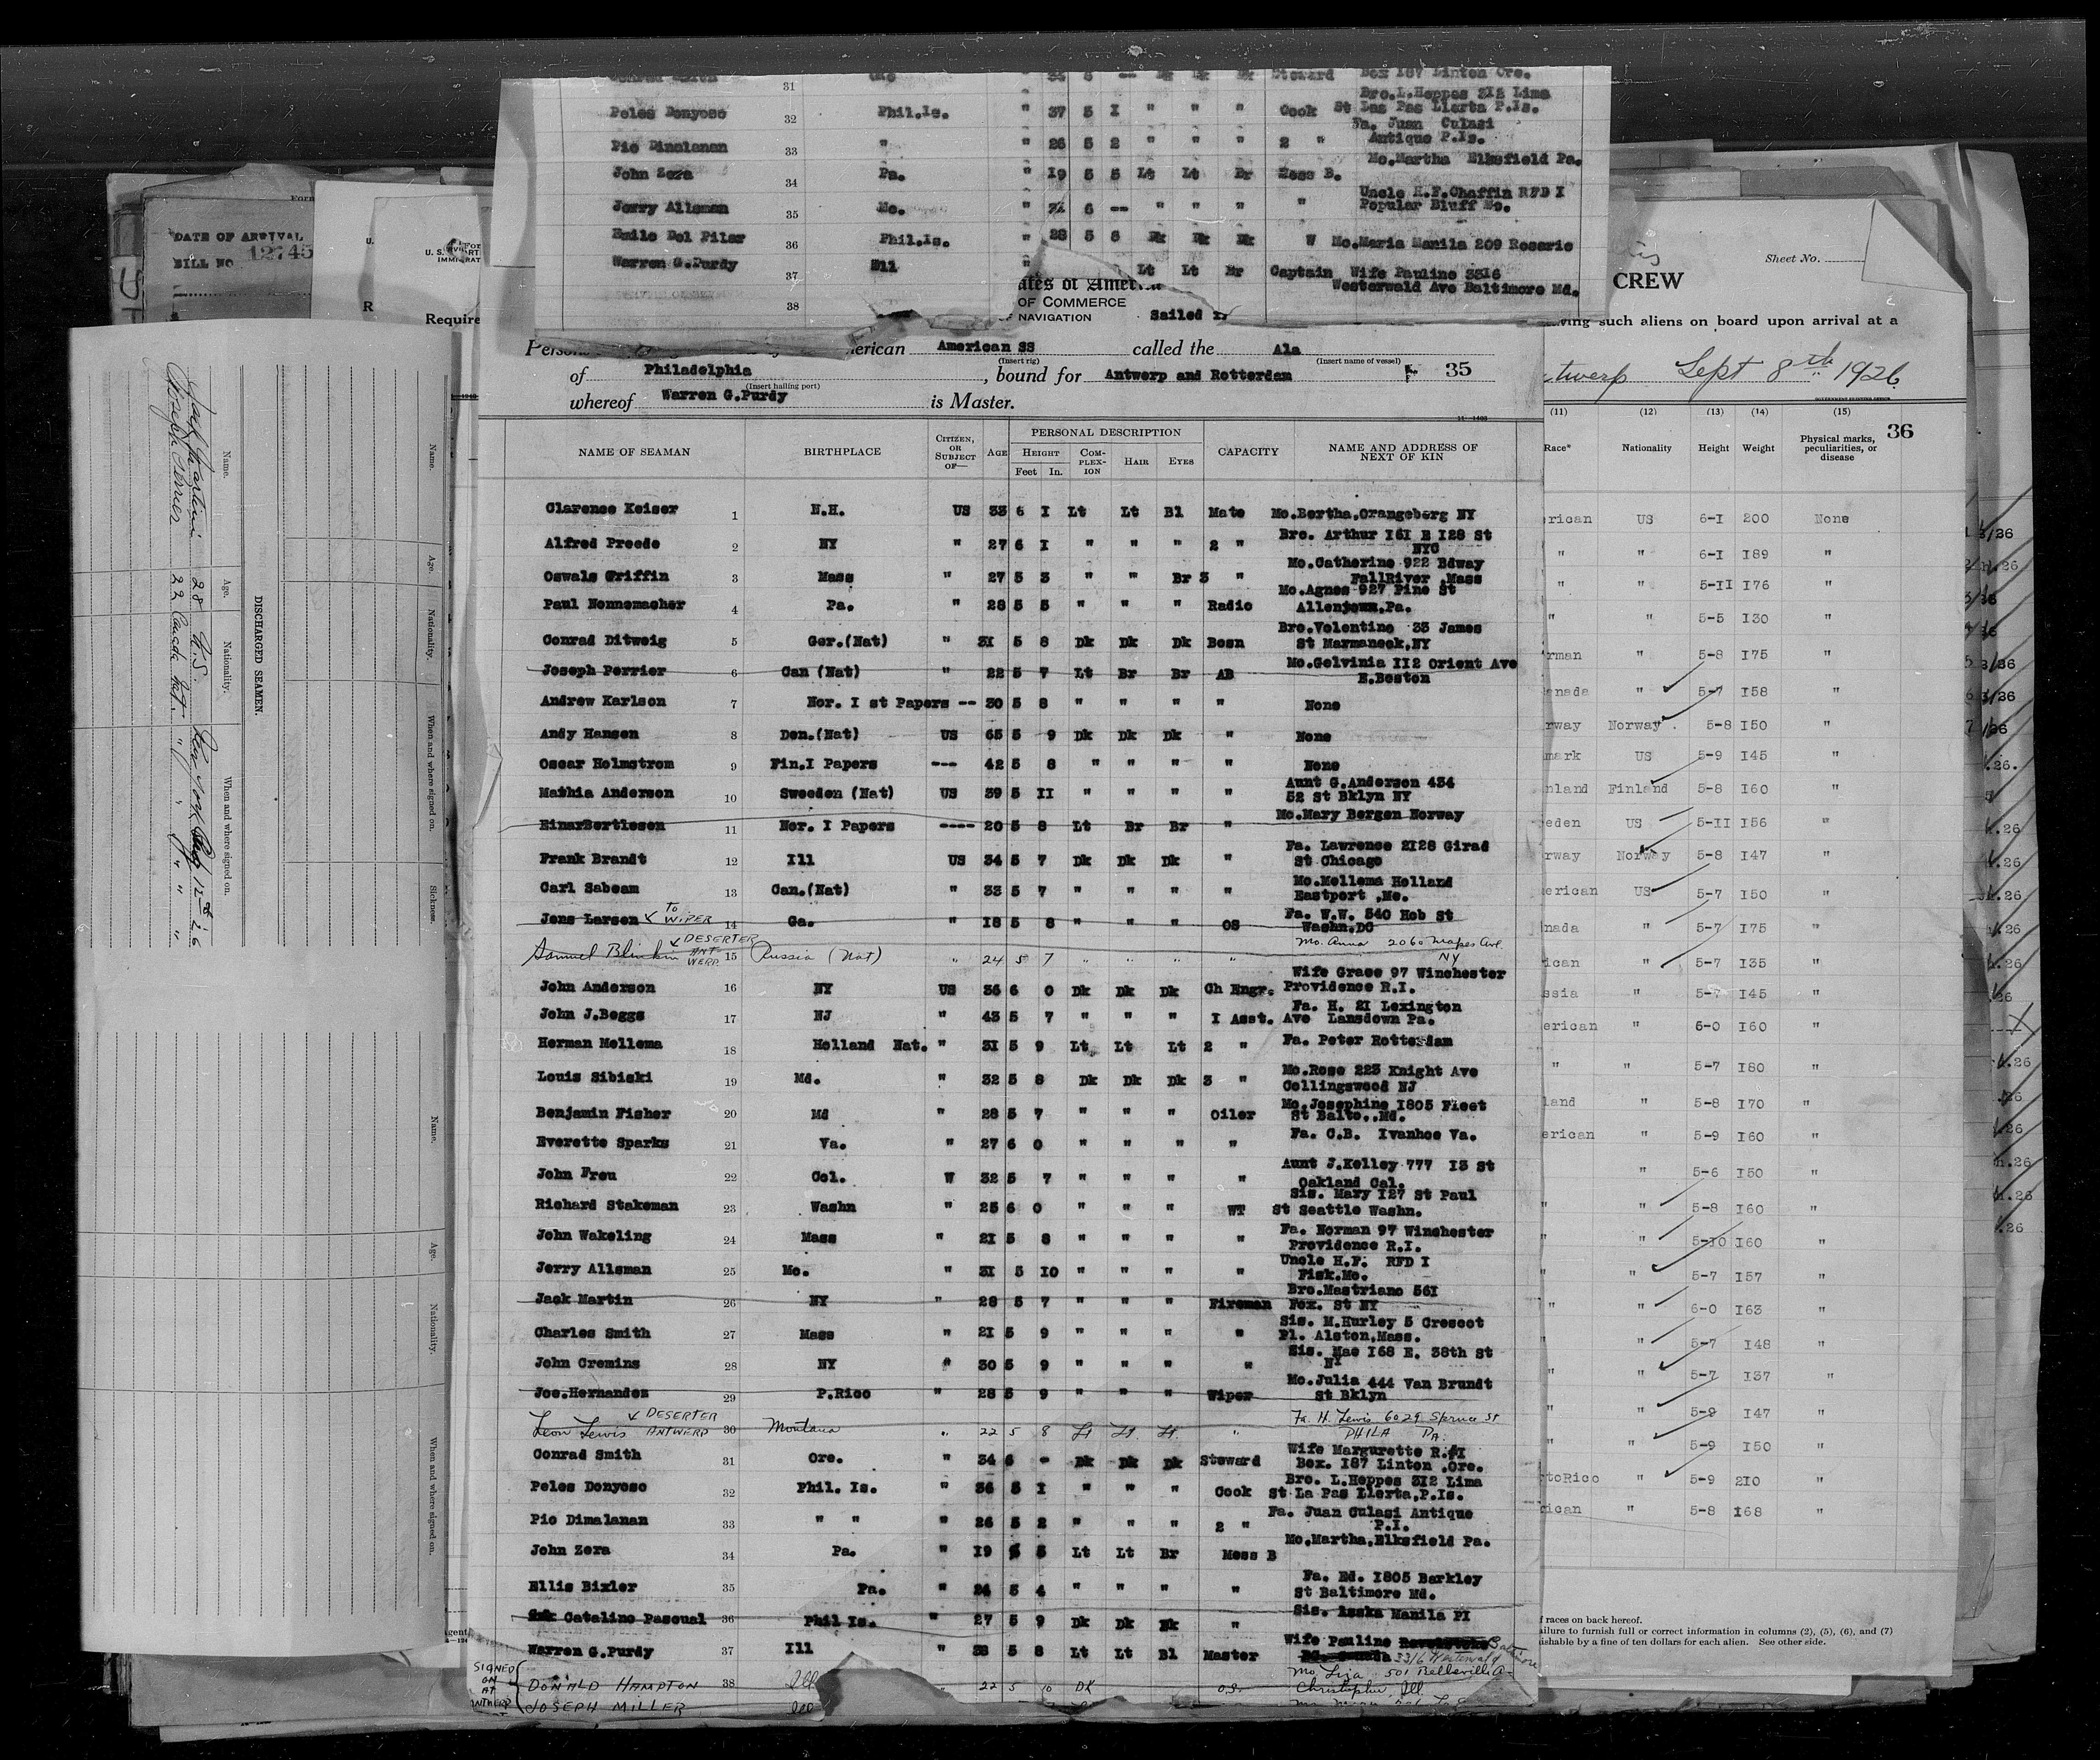 31 " 34 6 -- Dk Dk Dk Steward Box 187 Linton Ore.
Bro.L.Heppes 312 Lima
Peles Donyoso 32 Phil.Is. " 37 5 I " " " Cook St Las Pas Llerta P.Is.
Fa. Juan Culasi
Pio Dimalanan 33 " " 26 5 2 " " " 2 " Antique P.Is.
Mo.Martha Elksfield Pa.
John Zera 34 Pa. " I9 5 5 Lt Lt Br Mess B.
Uncle H.F.Chaffin RFD I
Jerry Allsman 35 Mo. " 31 6 -- " " " " Popular Bluff Mo.
Emile Del Pilar 36 Phil.Is. " 28 5 5 Dk Dk Dk W Mo.Maria Manila 209 Rosario
Warren G.Purdy 37 Ill " Lt Lt Br Captain Wife Pauline 33I6
Westerwald Ave Baltimore Md.
38
DATE OF ARRIVAL
BILL NO. 12745
Require
ates of America
OF COMMERCE
NAVIGATION
Sailed
erican American SS called the Ala
(Insert rig) (Insert name of vessel)
of Philadelphia, bound for Antwerp and Rotterdam 35
(Insert hailing port)
whereof Warren G.Purdy is Master.
NAME OF SEAMAN BIRTHPLACE CITIZEN, OR SUBJECT OF— AGE PERSONAL DESCRIPTION CAPACITY NAME AND ADDRESS OF NEXT OF KIN
HEIGHT Feet In. COMPLEX-ION HAIR EYES
Clarence Keiser 1 N.H. US 33 6 I Lt Lt Bl Mate Mo.Bertha,Orangeberg NY
Alfred Preede 2 NY " 27 6 I " " " 2 " Bro. Arthur I6I E I28 St
NYC
Oswals Griffin 3 Mass " 27 5 3 " " Br 3 " Mo.Catherine 922 Bdway
FallRiver ,Mass
Paul Nonnemacher 4 Pa. " 28 5 5 " " " Radio Mo.Agnes 927 Pine St
Allentown,Pa.
Conrad Ditweig 5 Ger.(Nat) " 3I 5 8 Dk Dk Dk Bosn Bro.Volentine 33 James
St Marmaneck,NY
Joseph Perrier 6 Can (Nat) " 22 5 7 Lt Br Br AB Mo.Gelvinia II2 Orient Ave
E.Boston
Andrew Karlson 7 Nor. I st Papers -- 30 5 8 " " " " None
Andy Hansen 8 Den.(Nat) US 65 5 9 Dk Dk Dk " None
Oscar Holmstrom 9 Fin.I Papers --- 42 5 8 " " " " None
Mathia Anderson 10 Sweeden (Nat) US 39 5 II " " " " Aunt G.Anderson 434
52 St Bklyn NY
EinarBertlesen 11 Nor. I Papers ---- 20 5 8 Lt Br Br " Mo.Mary Bergen Norway
Frank Brandt 12 Ill US 34 5 7 Dk Dk Dk " Fa. Lawrence 2I28 Girad
St Chicago
Carl Sabeam 13 Can.(Nat) " 33 5 7 " " " " Mo.Mellema Holland
Eastport ,Me.
Jens Larsen TO WIPER 14 Ga. " I8 5 8 " " " OS Fa. W.W. 540 Hob St
Washn.DC
Samuel Blinkin DESERTER ANTWERP 15 Russia (Nat) " 24 5 7 " " " " Mo. Anna 2060 Mapes Ave.
NY
John Anderson 16 NY US 36 6 0 Dk Dk Dk Ch Engr. Wife Grace 97 Winchester
Providence R.I.
John J.Boggs 17 NJ " 43 5 7 " " " I Asst. Fa. H. 2I Lexington
Ave Lansdown Pa.
Herman Mellema 18 Holland Nat. " 3I 5 9 Lt Lt Lt 2 " Fa. Peter Rotterdam
Louis Sibiski 19 Md. " 32 5 8 Dk Dk Dk 3 " Mo.Rose 223 Knight Ave
Collingswood NJ
Benjamin Fisher 20 Md " 28 5 7 " " " Oiler Mo.Josephine I805 Fleet
St Balto.,Md.
Everette Sparks 21 Va. " 27 6 0 " " " " Fa. C.B. Ivanhoe Va.
John Freu 22 Col. W 32 5 7 " " " " Aunt J.Kelley 777 I3 St
Oakland Cal.
Richard Stakeman 23 Washn " 25 6 0 " " " WT Sis. Mary I27 St Paul
St Seattle Washn.
John Wakeling 24 Mass " 2I 5 8 " " " " Fa. Norman 97 Winchester
Providence R.I.
Jerry Allsman 25 Mo. " 3I 5 10 " " " " Uncle H.F. RFD I
Fisk.Mo.
Jack Martin 26 NY " 28 5 7 " " " Fireman Bro.Mastriano 56I
Fox. St NY
Charles Smith 27 Mass " 2I 5 9 " " " " Sis. M.Hurley 5 Crescot
Pl. Alston,Mass.
John Cremins 28 NY " 30 5 9 " " " " Sis. Mae I68 E. 38th St
NY
Joe.Hernandez 29 P.Rico " 28 5 9 " " " Wiper Mo.Julia 444 Van Brundt
St Bklyn
Leon Lewis DESERTER ANTWERP 30 Montana " 22 5 8 Lt Lt Lt. " Fa. H. Lewis 6029 Spruce St
PHILA PA.
Conrad Smith 31 Ore. " 34 6 - Dk Dk Dk Steward Wife Margurette R.#I
Box. I87 Linton ,Ore.
Peles Donyoso 32 Phil. Is. " 36 5 I " " " Cook Bro. L.Heppes 3I2 Lima
St La Pas Llerta,P.Is.
Pio Dimalanan 33 " " " 26 5 2 " " " 2 " Fa. Juan Culasi Antique
P.I.
John Zera 34 Pa. " I9 5 5 Lt Lt Br Mess B Mo.Martha,Elksfield Pa.
Ellis Bixler 35 Pa. " 24 5 4 " " " " Fa. Ed. I805 Barkley
St Baltimore Md.
Catalino Pascual 36 Phil Is. " 27 5 9 Dk Dk Dk " Sis. Manila PI
Warren G.Purdy 37 Ill " 38 5 8 Lt Lt Bl Master Wife Pauline Baltimore
3316 Westerwald
SIGNED ON AT ANTWERP
DONALD HAMPTON 38 Ill 22 5 10 DK O.S. Mo Liza 501 Belleville A-
Christopher, Ill
JOSEPH MILLER Ill
Sheet No.
CREW
ving such aliens on board upon arrival at a
twerp Sept 8th 1926
(11) (12) (13) (14) (15)
Race* Nationality Height Weight Physical marks, peculiarities, or disease 36
rican US 6-I 200 None
" " 6-I I89 "
" " 5-II I76 "
" " 5-5 I30 "
rman " 5-8 I75 "
anada " 5-7 I58 "
rway Norway 5-8 I50 "
mark US 5-9 I45 "
nland Finland 5-8 I60 "
eden US 5-II I56 "
rway Norway 5-8 I47 "
erican US 5-7 I50 "
nada " 5-7 I75 "
ican " 5-7 I35 "
ssia " 5-7 I45 "
erican " 5-0 I60 "
" " 5-7 I80 "
land " 5-8 I70 "
erican " 5-9 I60 "
" 5-6 I50 "
" " 5-8 I60 "
" " 5-10 I60 "
" " 5-7 I57 "
" " 6-0 I63 "
" " 5-7 I48 "
" " 5-7 I37 "
" " 5-9 I47 "
" " 5-9 I50 "
toRico " 5-9 2I0 "
rican " 5-8 I68 "
f races on back hereof.
ailure to furnish full or correct information in columns (2), (5), (6), and (7)
ishable by a fine of ten dollars for each alien. See other side.
DISCHARGED SEAMEN.
Name. Age. Nationality. When and where signed on.
Jack Martin 28 U.S. New York Aug 12th '26
Joseph Perrier 22 Canada Nat. " " " "
Name. Age. Nationality. When and where signed on. Sickness.
Name. Age. Nationality. When and where signed on.